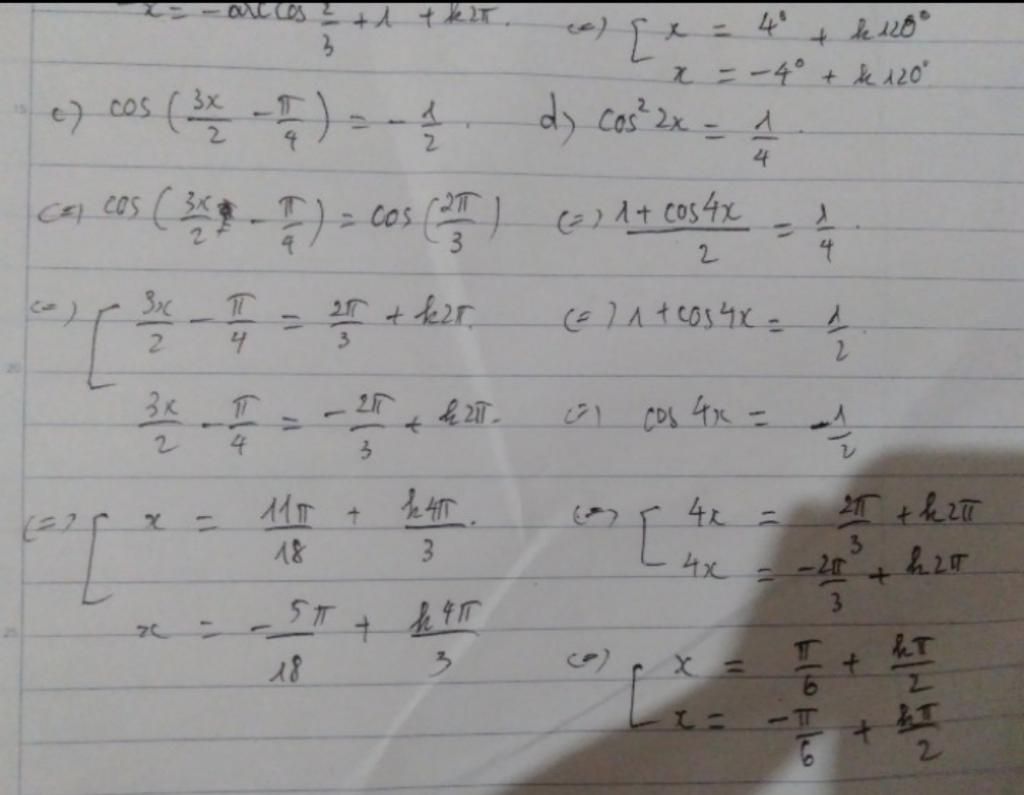 x = -arccos 2/3 + 1 + k2π.
(=) [ x = 4° + k120°
x = -4° + k120°
c) cos(3x/2 - π/4) = -1/2.
(=) cos(3x/2 - π/4) = cos(2π/3)
(=) [ 3x/2 - π/4 = 2π/3 + k2π.
3x/2 - π/4 = -2π/3 + k2π.
(=) [ x = 11π/18 + k4π/3.
x = -5π/18 + k4π/3
d) cos²2x = 1/4.
(=) 1+cos4x/2 = 1/4.
(=) 1+cos4x = 1/2.
(=) cos4x = -1/2
(=) [ 4x = 2π/3 + k2π
4x = -2π/3 + k2π
(=) [ x = π/6 + kπ/2
x = -π/6 + kπ/2
15
20
25